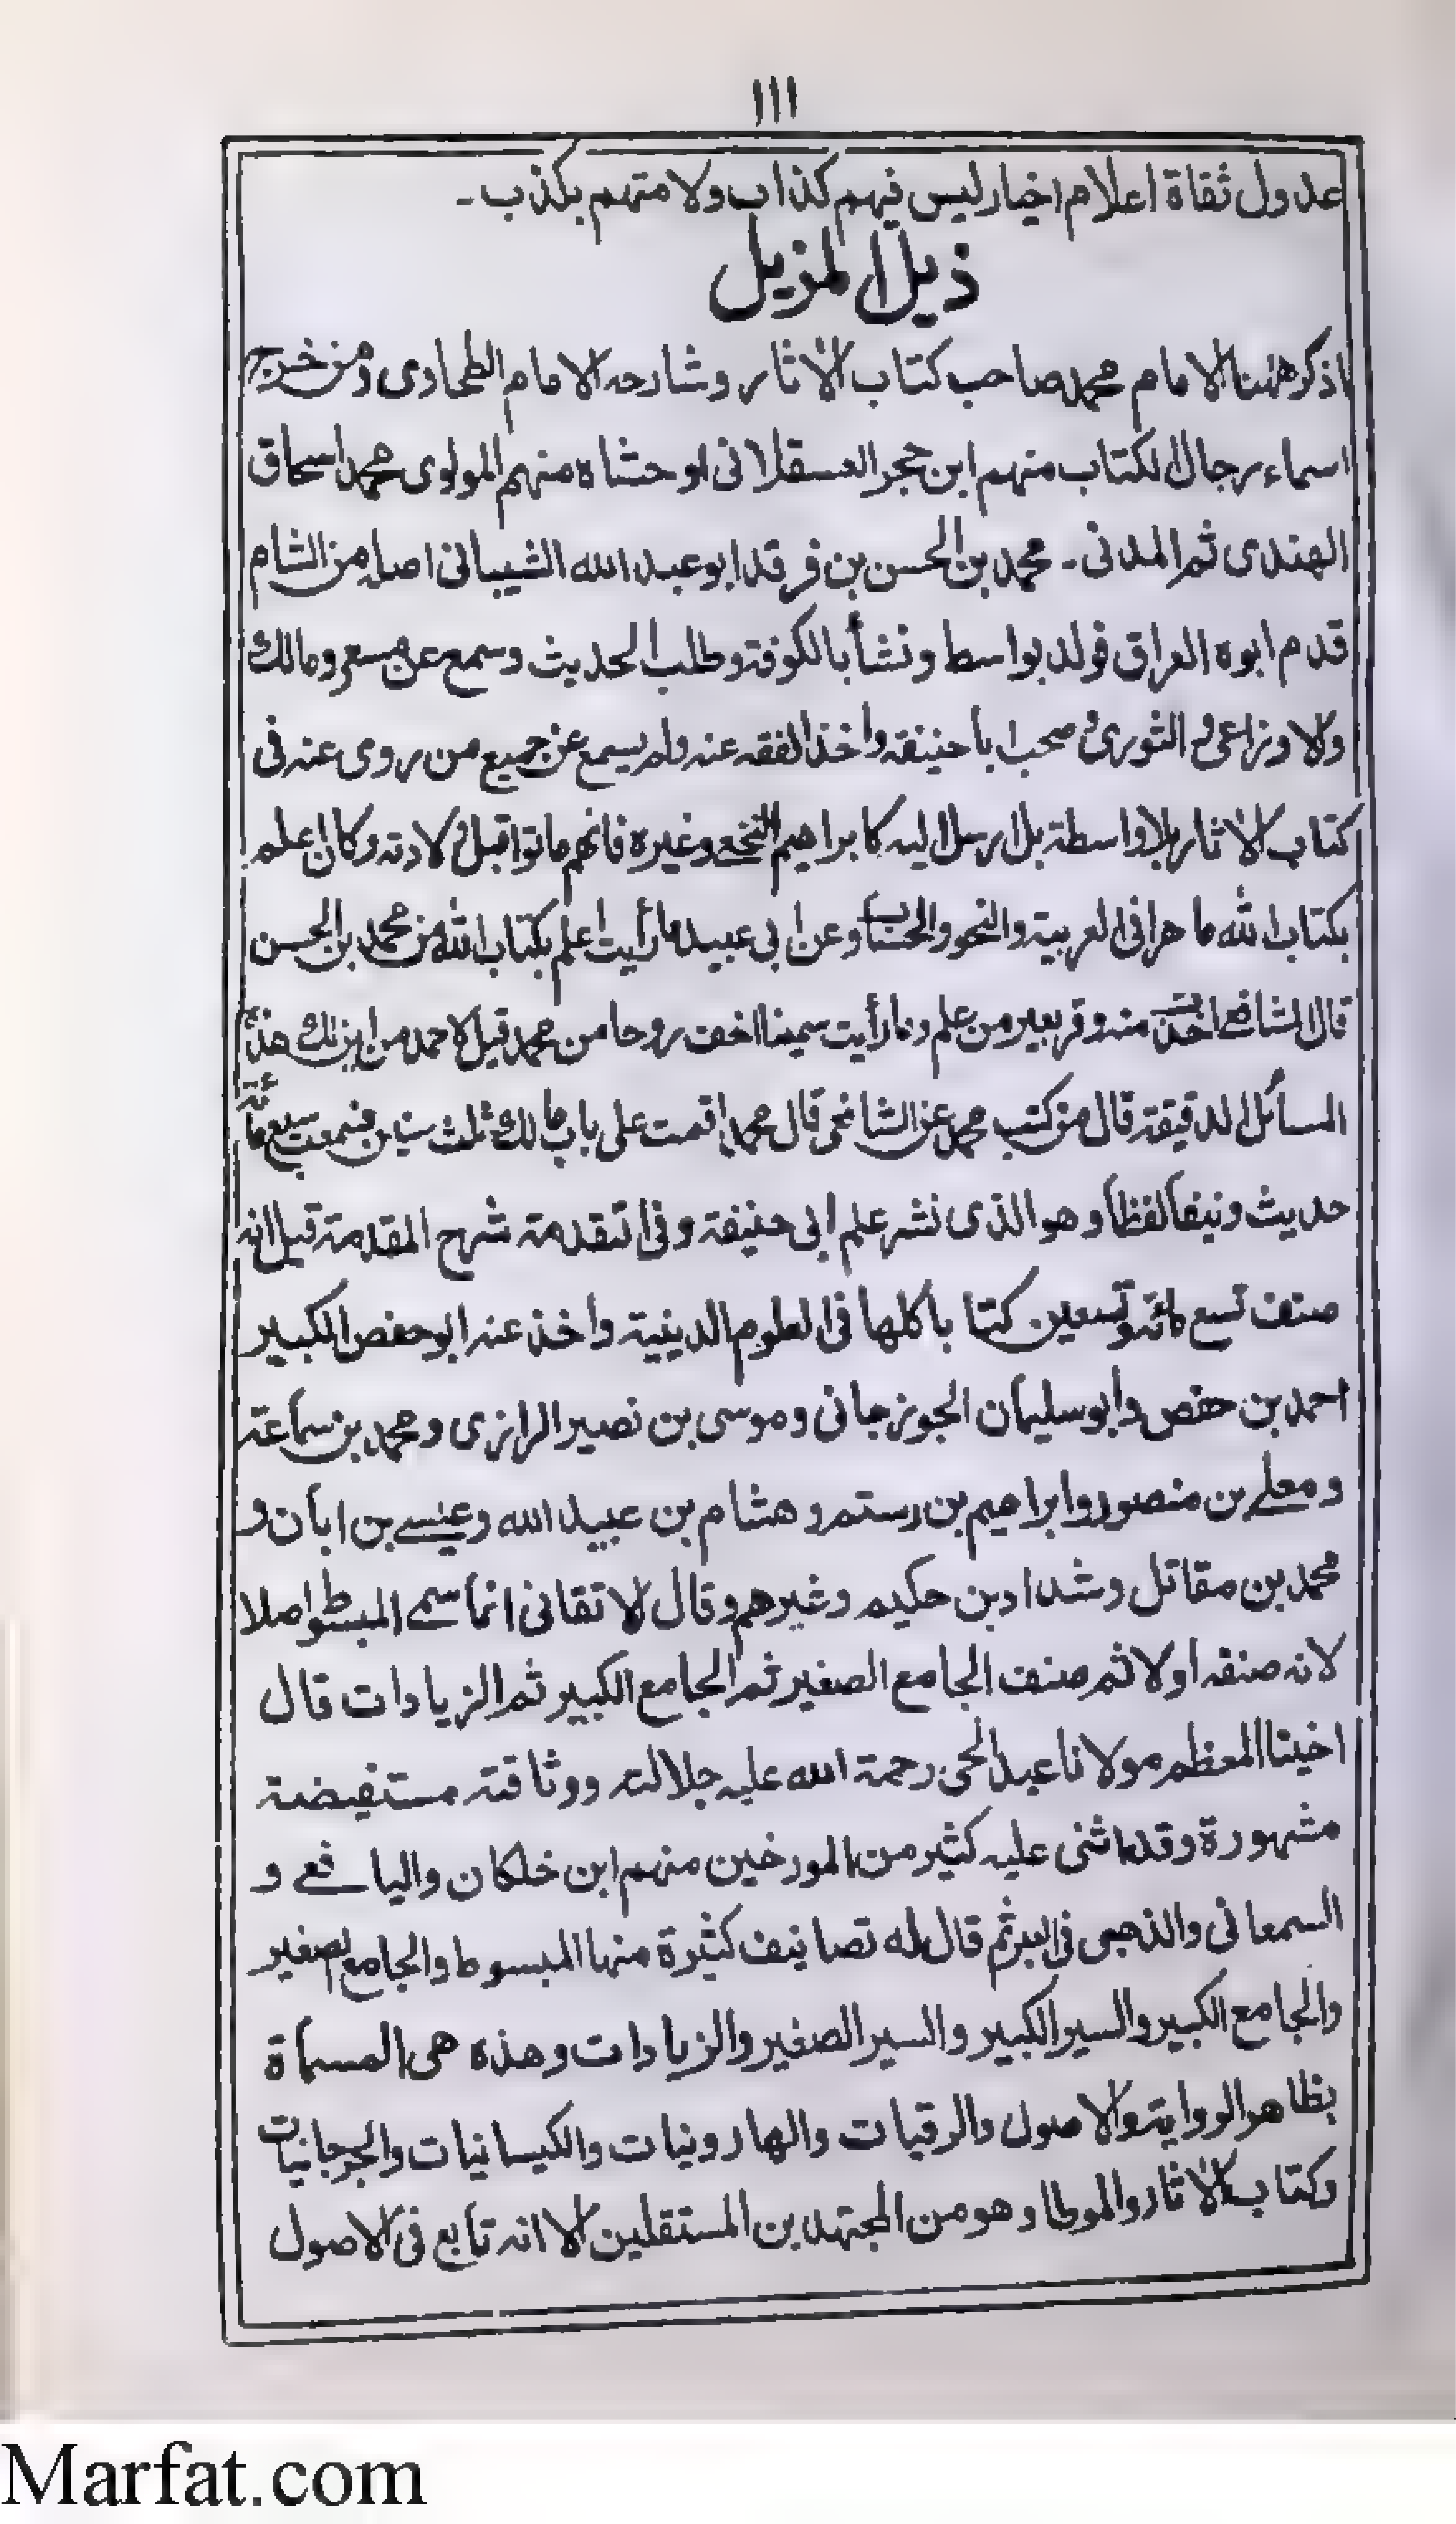 ١١١
عدول ثقاة اعلام اخيار ليس فيهم كذاب ولا متهم بكذب۔
ذيل المزيل
اذكر ههنا الامام محمد صاحب كتاب الآثار وشارحه الامام الطحاوى ومن خرج
اسماء رجال الكتاب منهم ابن حجر العسقلانى او حشاه منهم المولوى محمد اسحاق
الهندى ثم المدنى۔ محمد بن الحسن بن فرقد ابو عبد الله الشيبانى اصله من الشام
قدم ابوه العراق فولد بواسط ونشأ بالكوفة وطلب الحديث وسمع عن مسعر ومالك
والاوزاعى والثورى وصحب ابا حنيفة واخذ الفقه عنه ولم يسمع عن جميع من روى عنه فى
كتاب الآثار بلا واسطة بل ارسل اليه كابراهيم النخعى وغيره فانهم ماتوا قبل ولادته وكان اعلم
بكتاب الله ماهرا فى العربية والنحو والحساب وعن ابى عبيد ما رأيت اعلم بكتاب الله من محمد بن الحسن
قال الشافعى اخذت منه وقر بعير من علم وما رأيت سمينا اخف روحا من محمد قيل لاحمد من اين لك هذه
المسائل الدقيقة قال من كتب محمد عن الشافعى قال محمد اقمت على باب مالك ثلث سنين فسمعت سبع مأئة
حديث ونيفا لفظا وهو الذى نشر علم ابى حنيفة وفى تقدمة شرح المقدمة قيل انه
صنف تسع مائة وتسعين كتابا كلها فى العلوم الدينية واخذ عنه ابو حفص الكبير
احمد بن حفص وأبو سليمان الجوزجانى وموسى بن نصير الرازى ومحمد بن سماعة
ومعلے بن منصور وابراهيم بن رستم وهشام بن عبيد الله وعيسے بن ابان و
محمد بن مقاتل وشداد بن حكيم وغيرهم وقال الاتقانى انما سمے المبسوط اصلا
لانه صنفه اولا ثم صنف الجامع الصغير ثم الجامع الكبير ثم الزيادات قال
اخينا المعظم مولانا عبد الحى رحمة الله عليه جلالته ووثاقته مستفيضة
مشهورة وقد اثنى عليه كثير من المورخين منهم ابن خلكان واليافعے و
السمعانى والذهبى فى العبر ثم قال له تصانيف كثيرة منها المبسوط والجامع الصغير
والجامع الكبير والسير الكبير والسير الصغير والزيادات وهذه هى المسماة
بظاهر الرواية والاصول والرقيات والهارونيات والكيسانيات والجرجانيات
وكتاب الآثار والموطا وهو من المجتهدين المستقلين الا انه تابع فى الاصول
Marfat.com